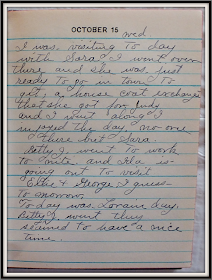 OCTOBER 15
wed
I was visiting to day
with Sara. I went over
there and she was just
ready to go in town to
get, a house coat exchanged
that she got for Judy
and I went along I
injoyed the day. no-one
there but Sara.
Betty J. went to work
to nite. and Ida is
going out to visit
Ellie & George I guess
to morrow.
To day was Lorain day.
Betty J. went they
seemed to have a nice
time.